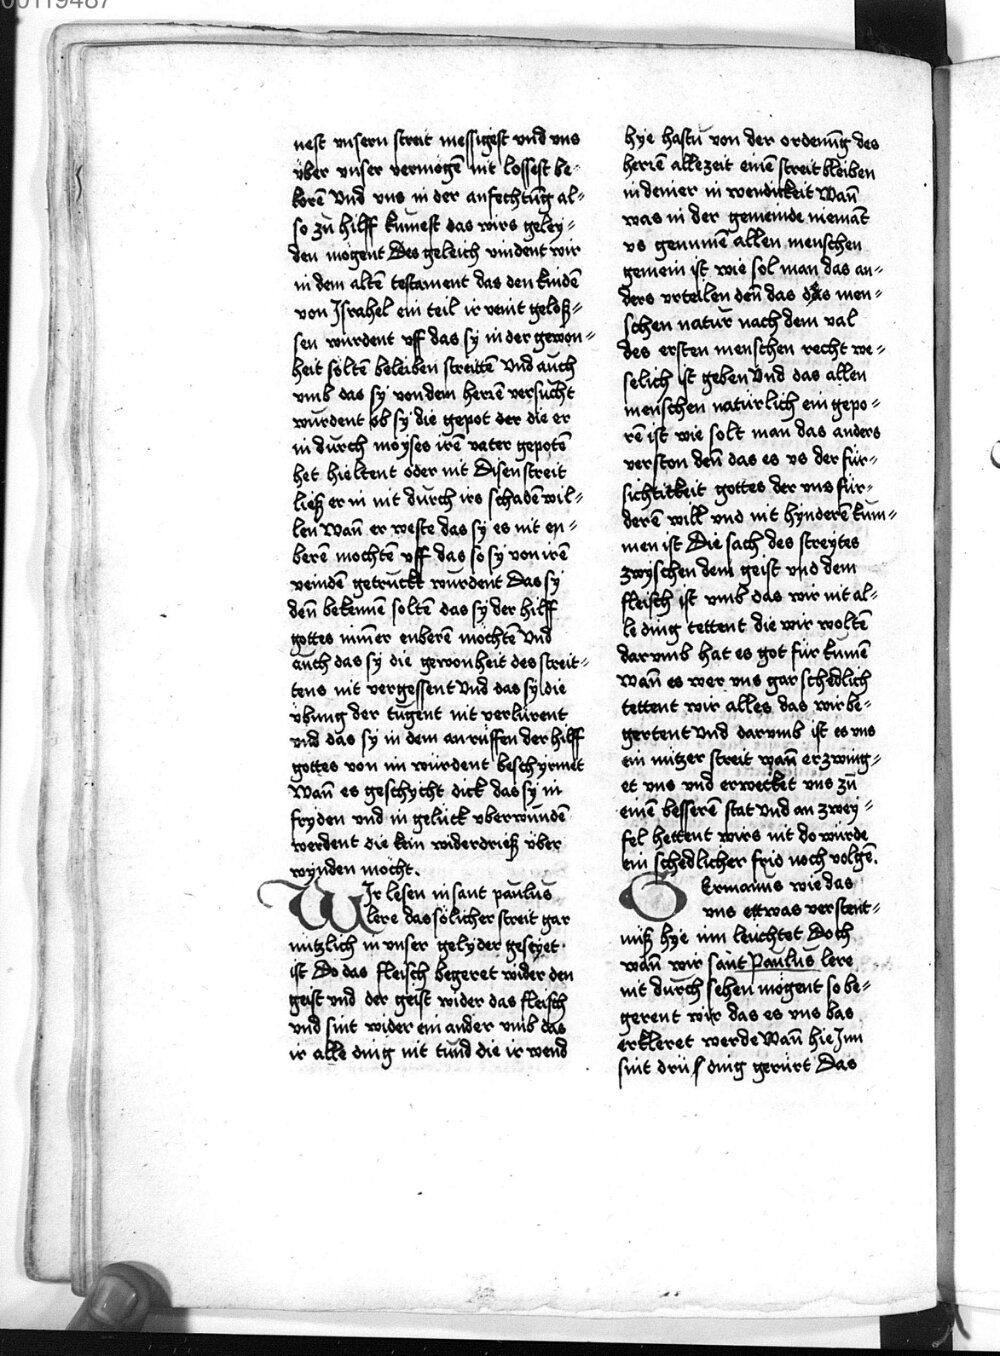 00119487
nest vnsern streit messigest vnd vns
vber vnser vermögē nit lossest be-
korē Vnd vns in der anfechtūg al-
so zů hilff kumest das wirs geley-
den mögent Des geleich vindent wir
in dem altē testament das den kindē
von Jsrahel ein teil ir veint geloß-
sen wurdent vff das sy in der gewon-
heit soltē beleiben streittē Vnd auch
vmb das sy von dem herrē versůcht
wurdent ob sy die gepot der die er
in durch moyses irē vater gepotē
het hieltent oder nit Disen streit
ließ er in nit durch irs schadē wil-
len Wañ er weste das sy es nit en-
berē mochtē vff das so sy von irē
veindē getruckt wurdent Das sy
deñ bekennen soltē das sy der hilff
gottes nim̄er enberē mochtē Vnd
auch das sy die gewonheit des streit-
tens nit vergessent Vnd das sy die
vbung der tugent nit verlurent
vnd das sy in dem an růffen der hilff
gottes von im wurdent beschyrmet
Wañ es geschycht dick das sy in
fryden vnd in gelück vberwundē
werdent die kein widerdrieß vber
wynden mocht.
WIr lesen in sant paulus
lere das sölicher streit gar
nützlich in vnser gelyder geseyet
ist Do das fleisch begeret wider den
geist vnd der geist wider das fleisch
vnd sint wider ein ander vmb das
ir alle ding nit tůnd die ir wend
hye hastu von der ordenūg des
herrē allezeit einē streit bleiben
in deiner in wendickeit Wañ
was in der gemeinde niemāt
vs genumē allen menschen
gemein ist wie sol man das an-
ders vrteilen deñ das das men-
schen natur nach dem val
des ersten menschen recht we-
selich ist geben Vnd das allen
menschen natürlich ein gepo-
rē ist wie solt man das anders
verston deñ das es vs der für-
sichtikeit gottes der vns für-
derē will vnd nit hynderē kum-
men ist Die sach des streytes
zwyschen dem geist vnd dem
fleisch ist vmb das wir nit al-
le ding tettent die wir woltē
dar vmb hat es got für kumē
Wañ es wer vns gar schedlich
tettent wir alles das wir be-
gertent Vnd darvmb ist es vns
ein nützer streit wañ er zwing-
et vns vnd erwecket vns zů
einē besserē stat Vnd an zwey-
fel hettent wirs nit do würde
ein schedlicher frid noch volgē.
GErmanus wie das
vns ettwas verstent-
niß hye inn leuchtet Doch
wañ wir sant Paulus lere
nit durch sehen mögent so be-
gerent wir das es vns bas
erkleret werde Wañ hie Jnn
sint drü ding gerürt Das